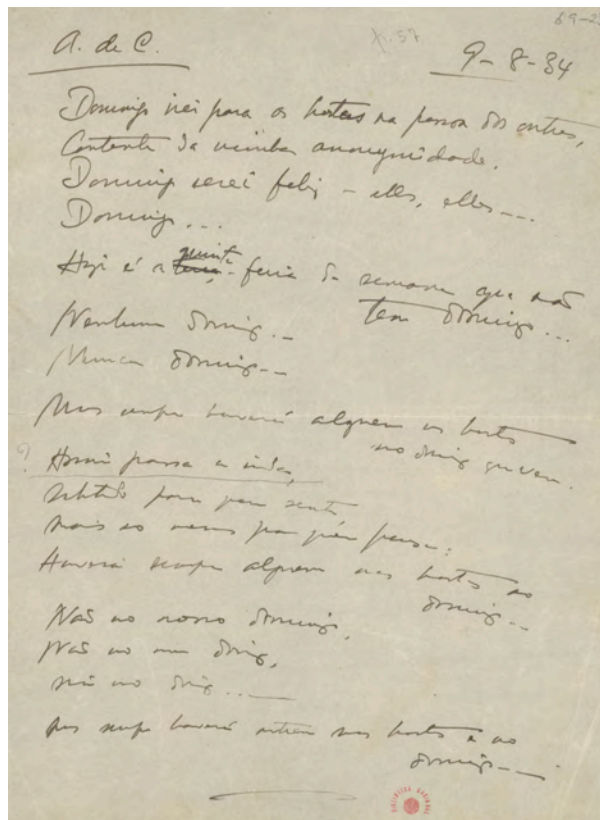 69-2
p. 57
A. de C.
9-8-34
Domingo irei para as hortas na pessoa dos outros,
Contente da minha anonymidade.
Domingo serei feliz — elles, elles...
Domingo...
Hoje é a quinta-feira da semana que não
tem domingo...
Nenhum domingo...
Nunca domingo...
Mas sempre haverá alguem nas hortas
no domingo que vem.
?
passa a vida,
Subtil para quem sente,
Mais ou menos para quem pensa:
Haverá sempre alguem nas hortas ao
domingo...
Não no nosso domingo,
Não no meu domingo,
Não no domingo...
Mas sempre haverá outros nas hortas e ao
domingo...
BIBLIOTECA NACIONAL